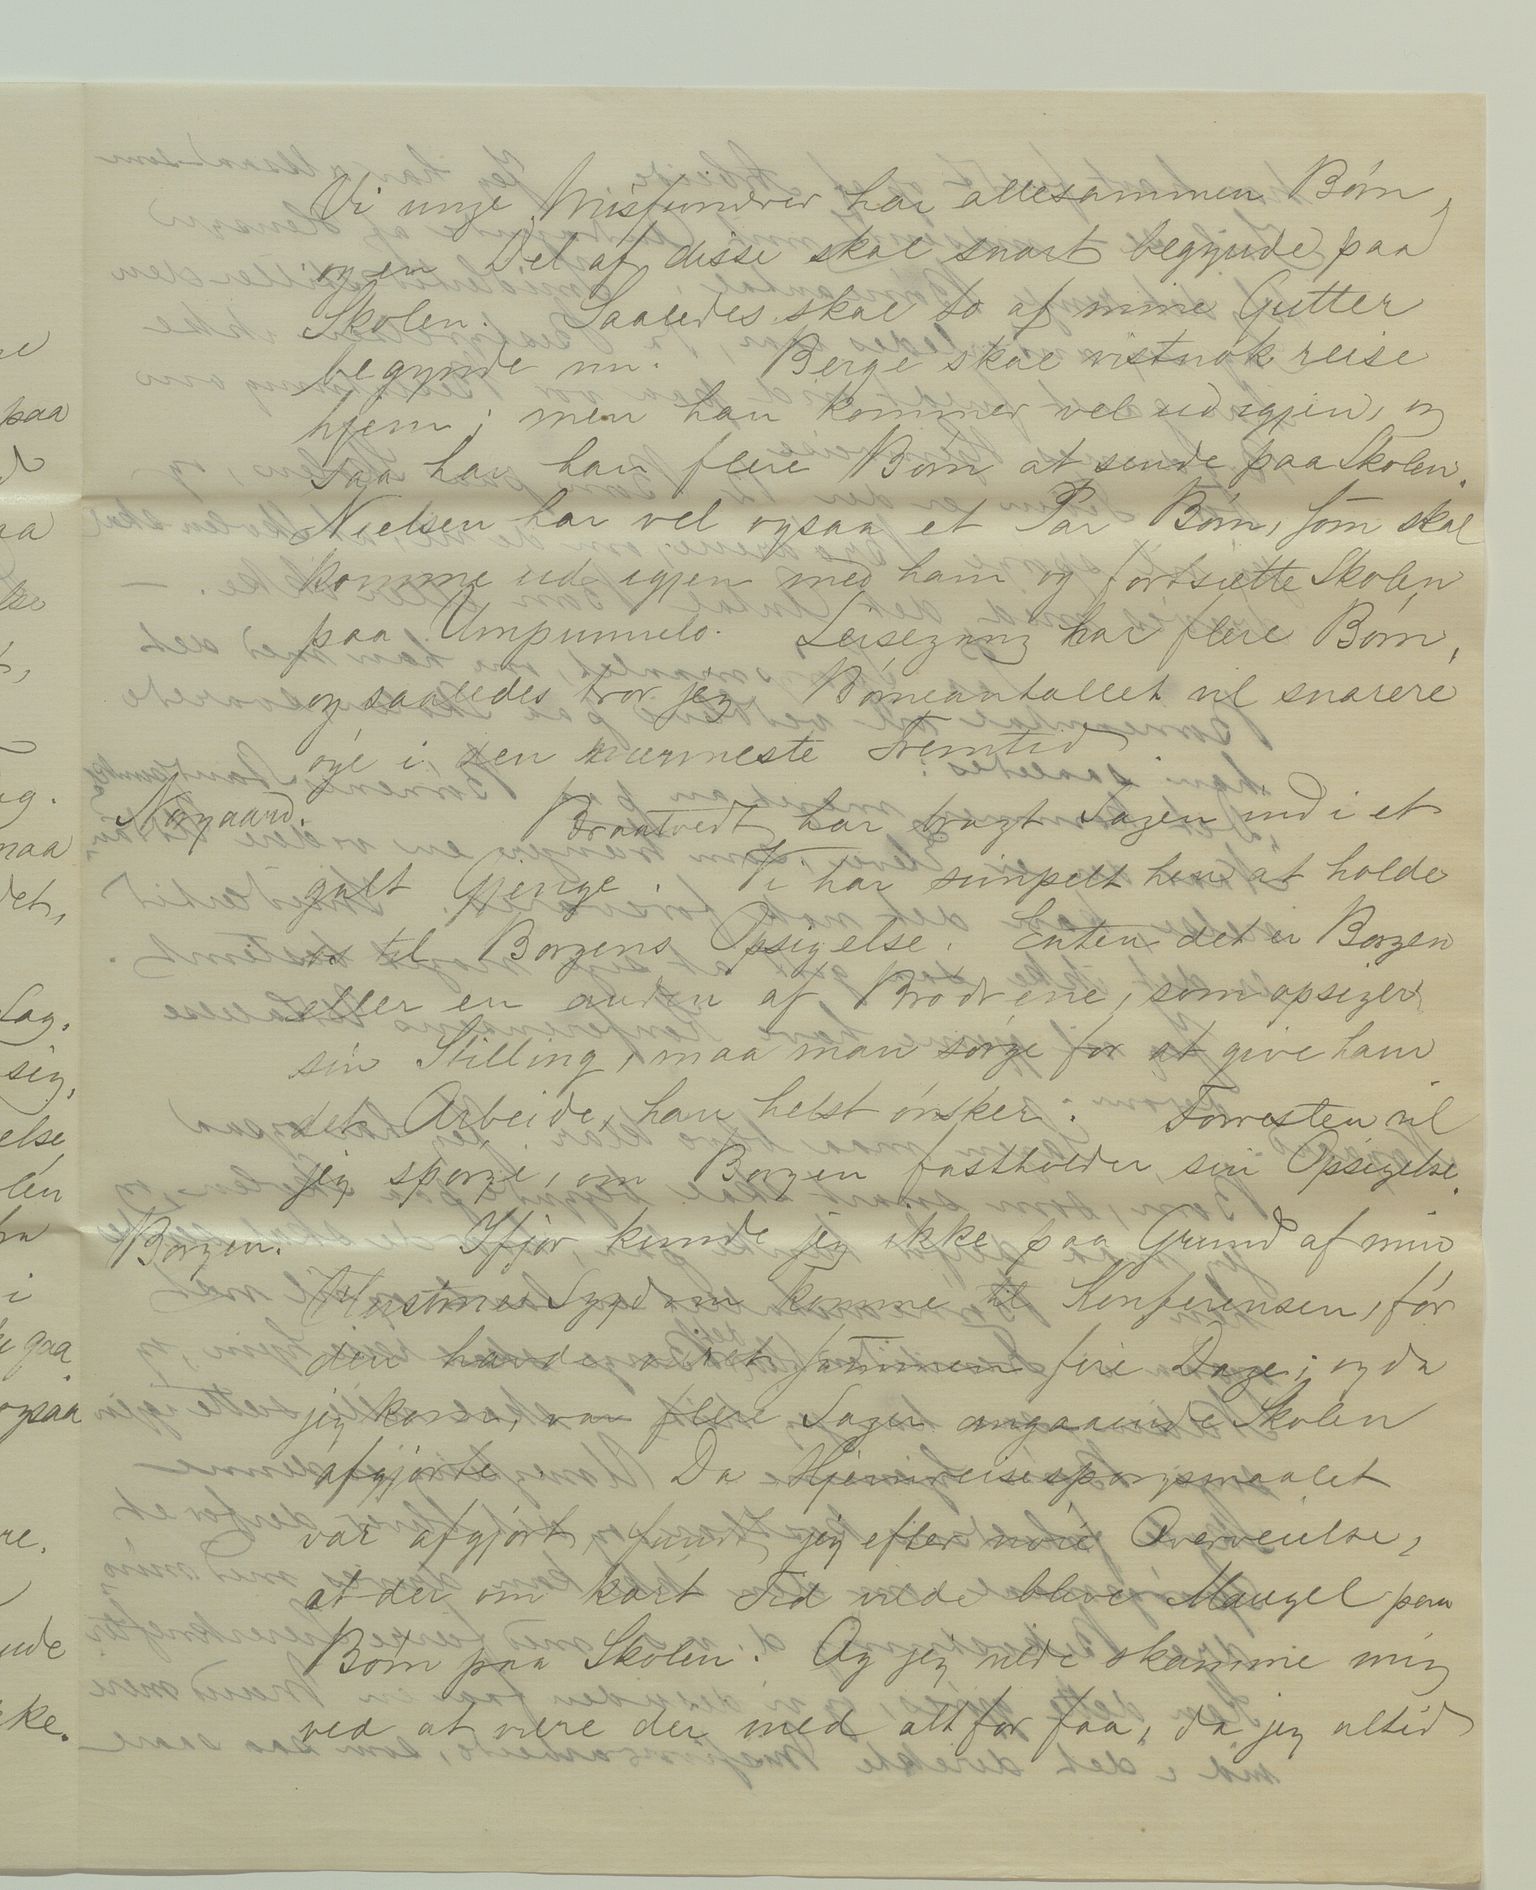 Vi unge Misjonærer har allesammen Børn,
og en Del af disse skal snart begynde paa
Skolen. Saaledes skal to af mine Gutter
begynde nu. Berge skal vistnok reise
hjem; men han kommer vel ud igjen, og
saa har han flere Børn at sende paa Skolen.
Nielsen har vel ogsaa et Par Børn, som skal
komme ud igjen med ham og fortsætte Skolen
paa Umpumulo. Leisegang har flere Børn,
og saaledes tror jeg Børneantallet vil snarere
øge i den nærmeste Fremtid
Norgaard. Braatvedt har bragt Sagen ind i et
galt Gjænge. Vi har simpelt hen at holde
os til Borgens Opsigelse. Enten det er Borgen
eller en anden af Brødrene, som opsiger
sin Stilling, maa man sørge for at give ham
det Arbeide, han helst ønsker. Forresten vil
jeg spørge, om Borgen fastholder sin Opsigelse.
Borgen. Ifjor kunde jeg ikke paa Grund af min
Hustrues Sygdom komme til Konferensen, før
den havde været sammen fire Dage; og da
jeg kom, var flere Sager angaaende Skolen
afgjørte. Da Hjemreisespørgsmaalet
var afgjort, fandt jeg efter nøie Overveielse,
at der om kort Tid vilde blive Mangel paa
Børn paa Skolen. Og jeg vilde skamme mig
ved at være der med altfor faa, da jeg altid